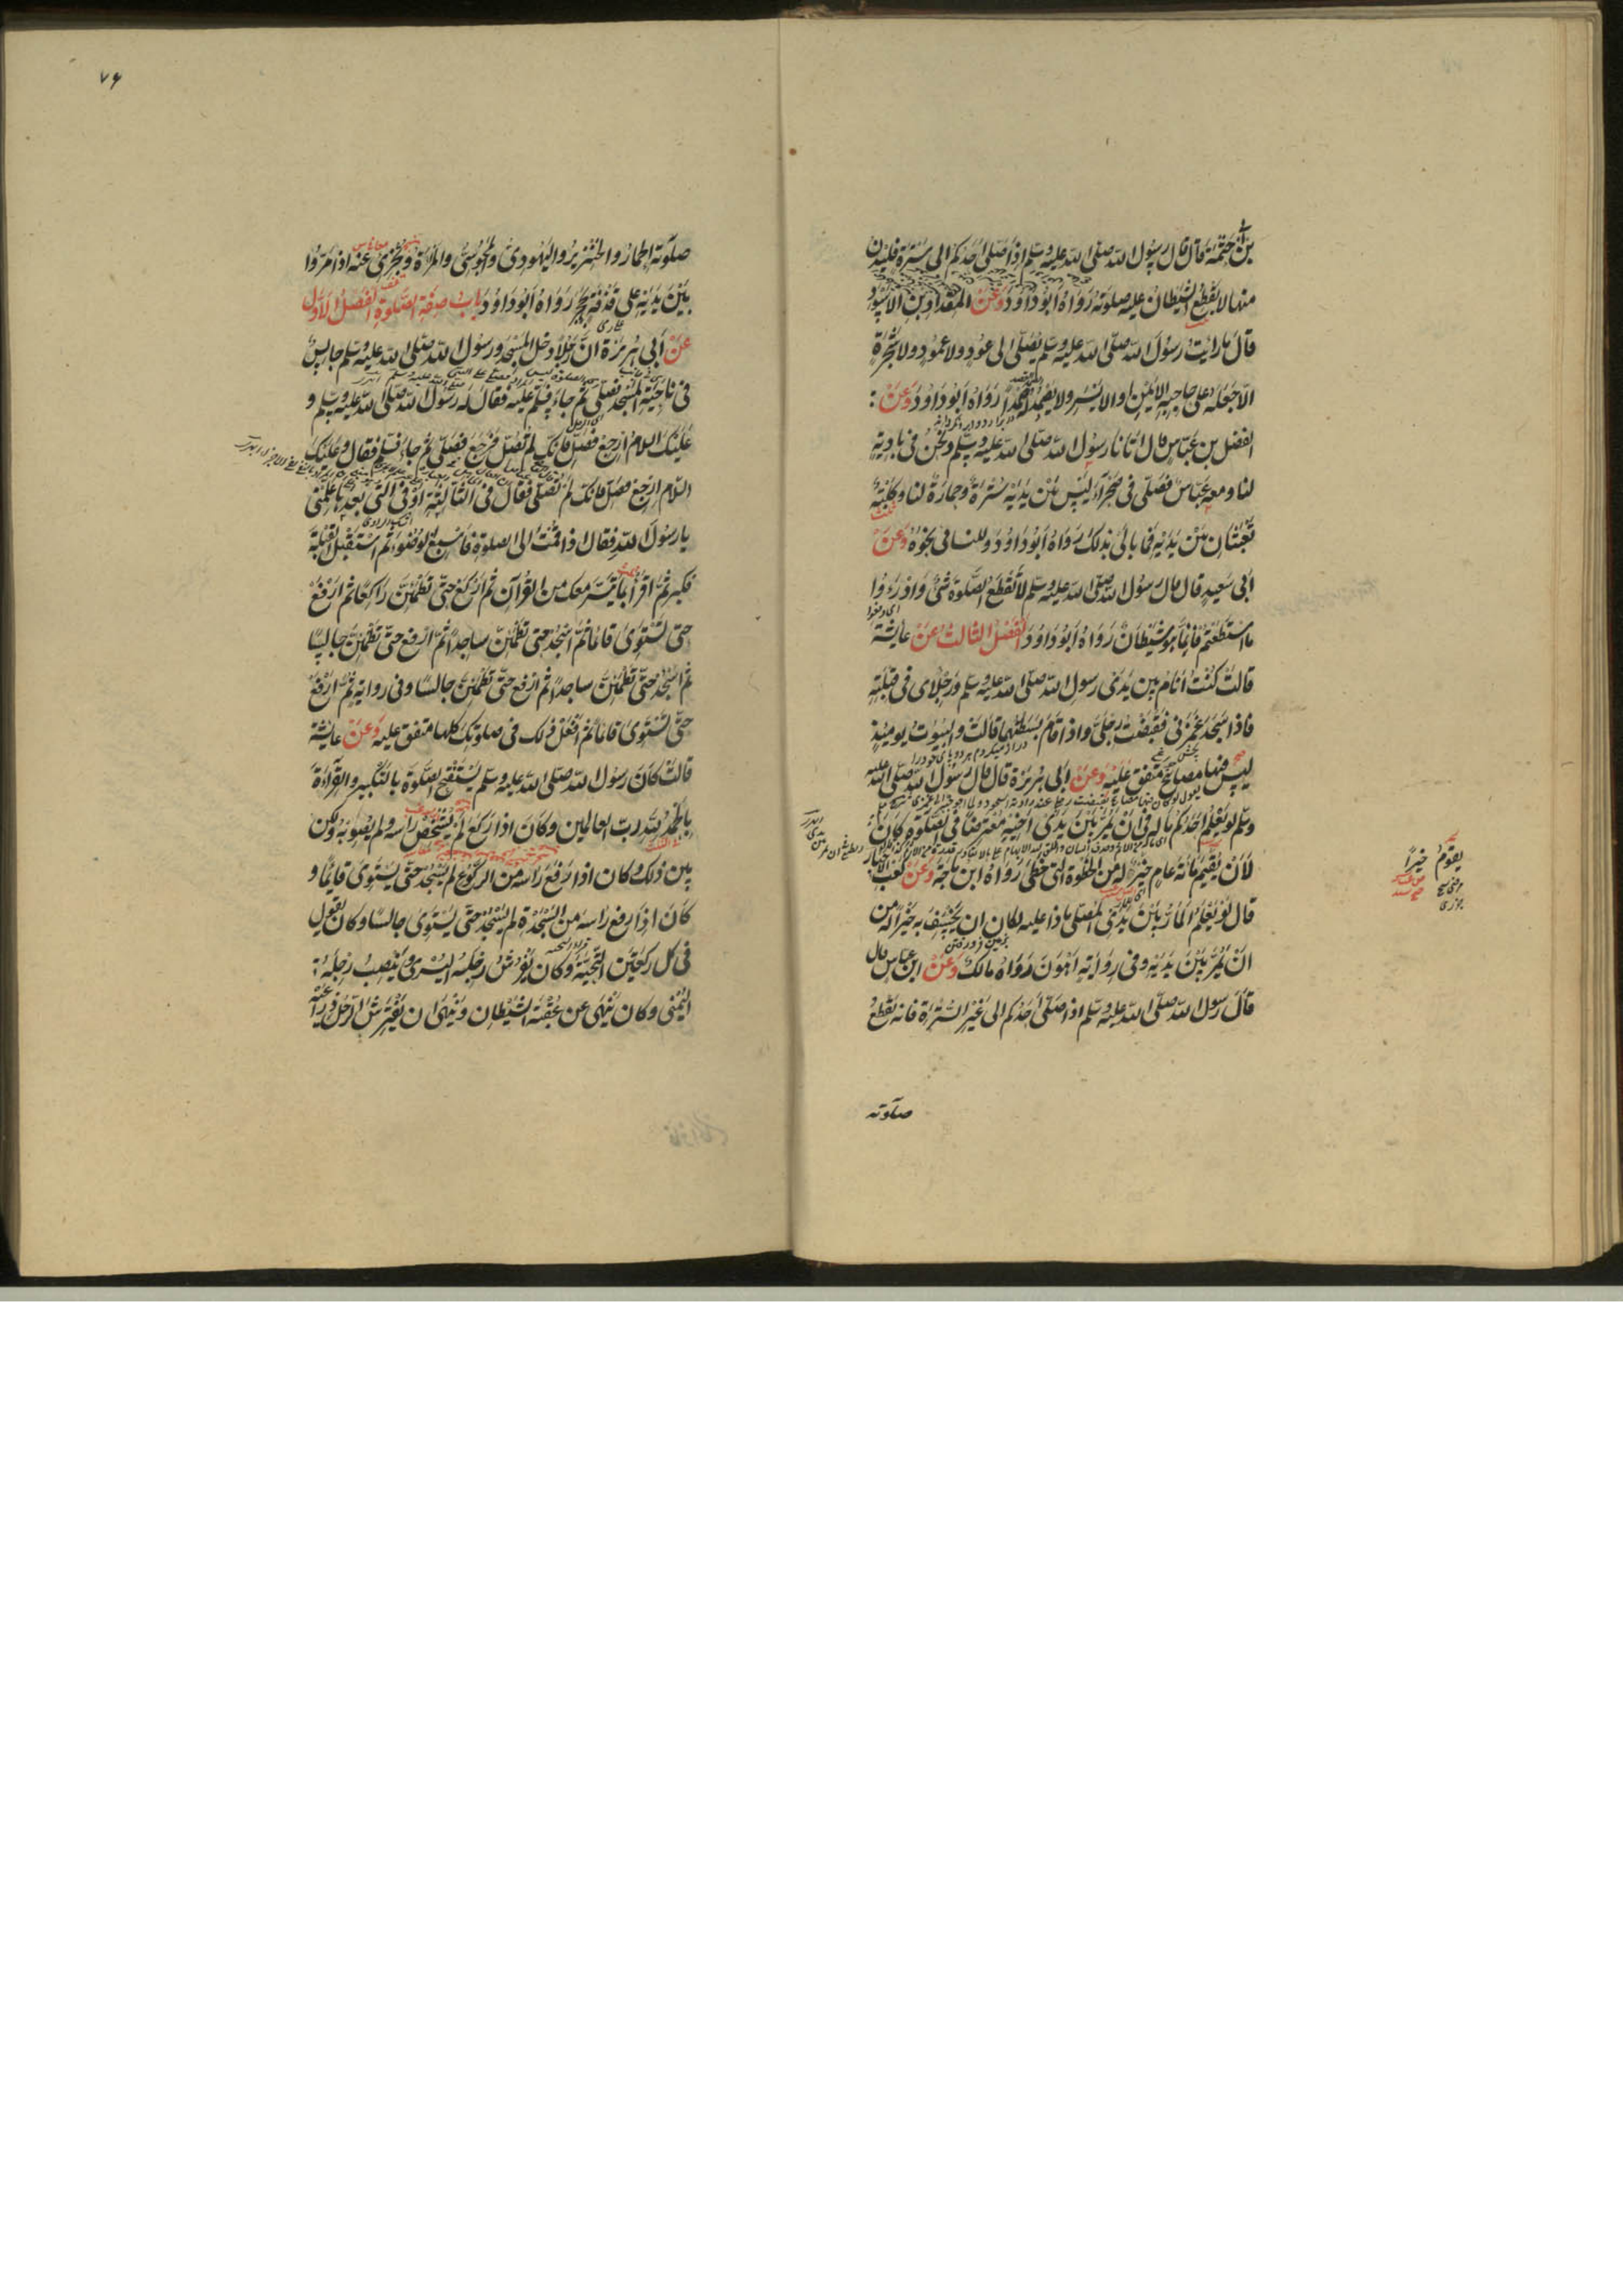 بن ابي حثمة قال قال رسول الله صلى الله عليه وسلم اذا صلى احدكم الى سترة فليدن
منها لا يقطع الشيطان عليه صلوته رواه ابوداود وعن المقداد بن الاسود
قال ما رايت رسول الله صلى الله عليه وسلم يصلى الى عود ولا عمود ولا شجرة
الا جعله على حاجبه الايمن او الايسر ولا يصمد له صمدا رواه ابوداود وعن
الفضل بن عباس قال اتانا رسول الله صلى الله عليه وسلم ونحن فى بادية
لنا ومعه عباس فصلى فى صحراء ليس بين يديه سترة وحمارة لنا وكلبة
تعبثان بين يديه فما بالى بذلك رواه ابوداود وللنسائى نحوه وعن
ابى سعيد قال قال رسول الله صلى الله عليه وسلم لا يقطع الصلوة شئ وادرءوا
ما استطعتم فانما هو شيطان رواه ابوداود الفصل الثالث عن عايشة
قالت كنت انام بين يدى رسول الله صلى الله عليه وسلم ورجلاى فى قبلته
فاذا سجد غمزنى فقبضت رجلى واذا قام بسطتهما قالت والبيوت يومئذ
ليس فيها مصابيح متفق عليه وعن ابى هريرة قال قال رسول الله صلى الله عليه
وسلم لو يعلم احدكم ما له فى ان يمر بين يدى اخيه معترضا فى الصلوة كان
لان يقيم مائة عام خير له من الخطوة التى خطى رواه ابن ماجة وعن كعب الاحبار
قال لو يعلم المار بين يدى المصلى ماذا عليه لكان ان يخسف به خيرا له من
ان يمر بين يديه وفى رواية اهون رواه مالك وعن ابن عباس قال
قال رسول الله صلى الله عليه وسلم اذا صلى احدكم الى غير السترة فانه يقطع
صلوته
يقوم خيرا
٧٦
صلوته الحمار والخنزير واليهودى والمجوسى والمراة ويجزى عنه اذا مروا
بين يديه على قذفة بحجر رواه ابوداود باب صفة الصلوة الفصل الاول
عن ابى هريرة ان رجلا دخل المسجد ورسول الله صلى الله عليه وسلم جالس
فى ناحية المسجد فصلى ثم جاء فسلم عليه فقال له رسول الله صلى الله عليه وسلم و
عليك السلام ارجع فصل فانك لم تصل فرجع فصلى ثم جاء فسلم فقال وعليك
السلام ارجع فصل فانك لم تصل فقال فى الثالثة او فى التى بعدها علمنى
يا رسول الله فقال اذا قمت الى الصلوة فاسبغ الوضوء ثم استقبل القبلة
فكبر ثم اقرا بما تيسر معك من القرآن ثم اركع حتى تطمئن راكعا ثم ارفع
حتى تستوى قائما ثم اسجد حتى تطمئن ساجدا ثم ارفع حتى تطمئن جالسا
ثم اسجد حتى تطمئن ساجدا ثم ارفع حتى تطمئن جالسا وفى رواية ثم ارفع
حتى تستوى قائما ثم افعل ذلك فى صلوتك كلها متفق عليه وعن عايشة
قالت كان رسول الله صلى الله عليه وسلم يستفتح الصلوة بالتكبير والقراءة
بالحمد لله رب العالمين وكان اذا ركع لم يشخص راسه ولم يصوبه ولكن
بين ذلك وكان اذا رفع راسه من الركوع لم يسجد حتى يستوى قايما و
كان اذا رفع راسه من السجدة لم يسجد حتى يستوى جالسا وكان يقول
فى كل ركعتين التحية وكان يفرش رجله اليسرى وينصب رجله
اليمنى وكان ينهى عن عقبة الشيطان وينهى ان يفترش الرجل ذراعيه